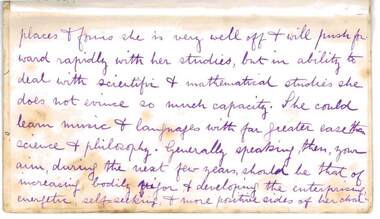 places & forms she is very well off & will push for
ward rapidly with her studies, but in ability to
deal with scientific & mathematical studies she
does not evince so much capacity. She could
learn music & languages with far greater ease than
science & philosophy. Generally speaking then, your
aim, during the next few years, should be that of
increasing bodily vigor & developing the enterprising,
energetic, self seeking, & more positive sides of her char